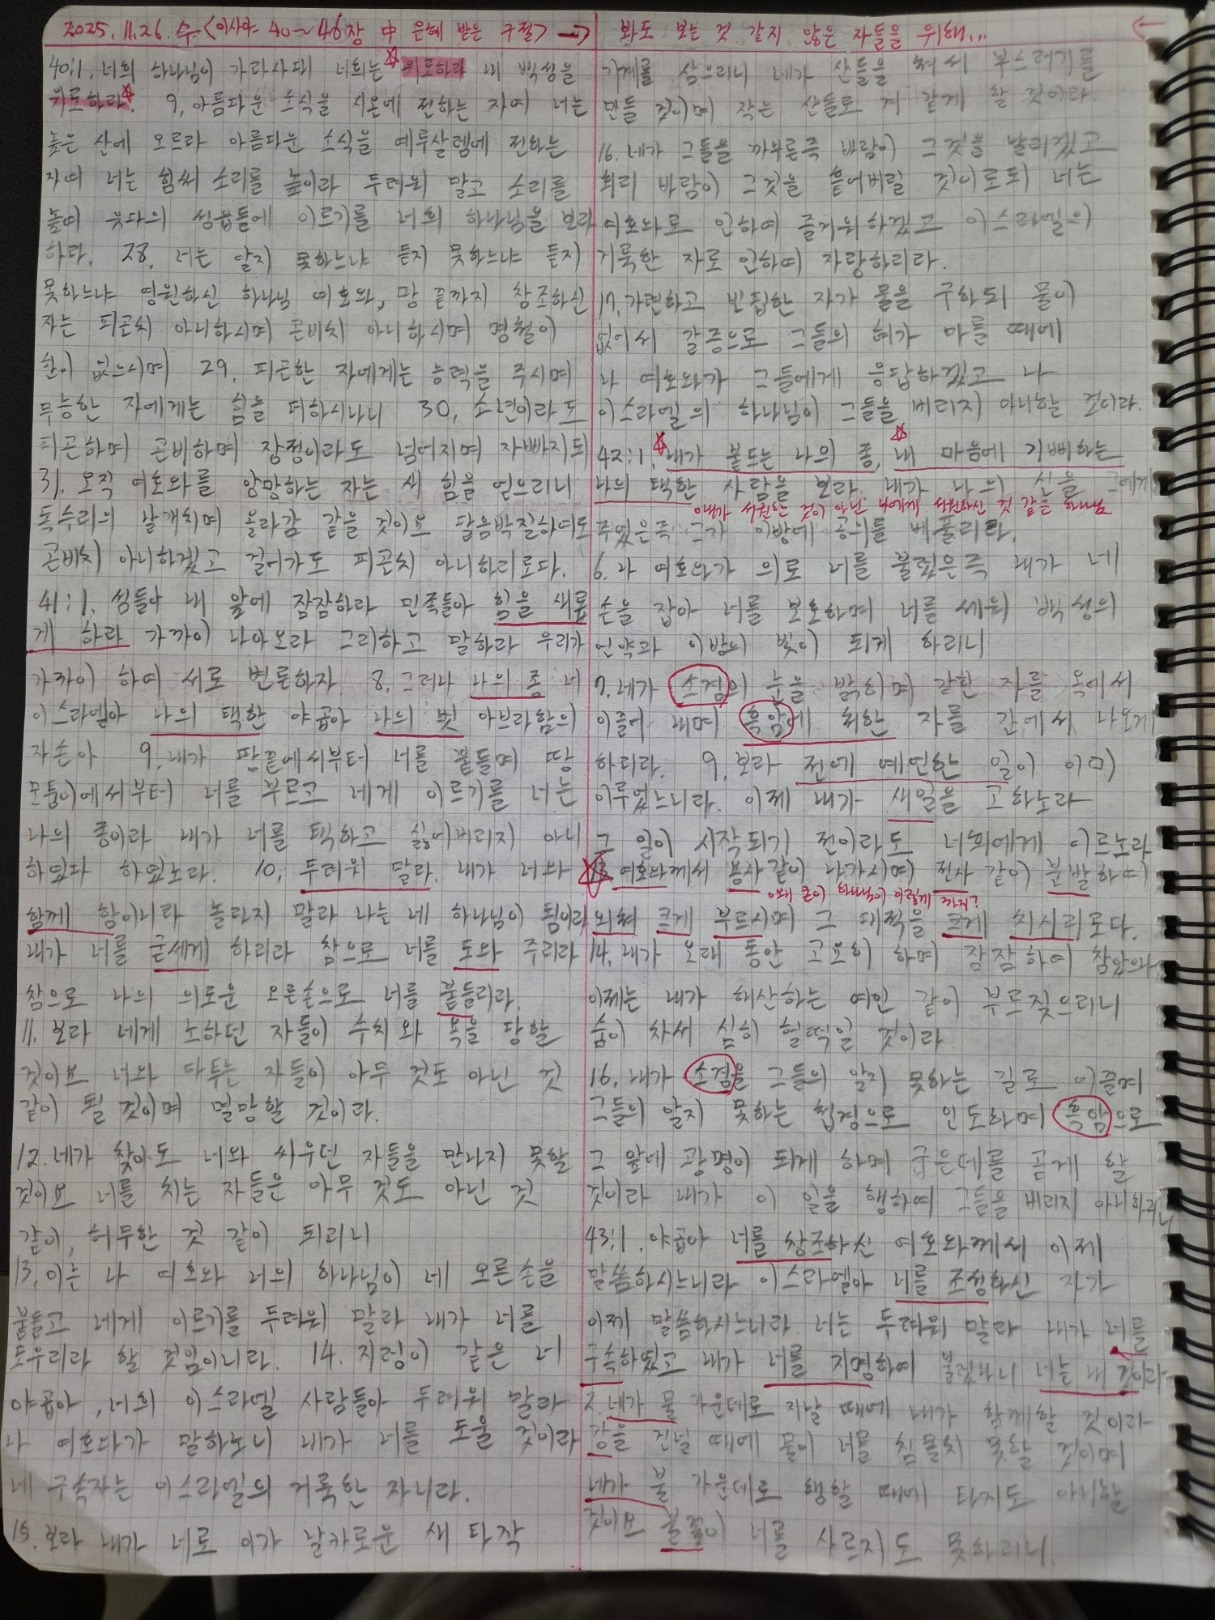 2025. 11. 26. 수 <이사야 40~46장 中 은혜 받은 구절> → 봐도 보는 것 같지 않은 자들을 위해...
40:1. 너희 하나님이 가라사대 너희는 위로하라 내 백성을
위로하라. 9. 아름다운 소식을 시온에 전하는 자여 너는
높은 산에 오르라 아름다운 소식을 예루살렘에 전하는
자여 너는 힘써 소리를 높이라 두려워 말고 소리를
높여 유다의 성읍들에 이르기를 너희 하나님을 보라
하라. 28. 너는 알지 못하느냐 듣지 못하느냐 듣지
못하느냐 영원하신 하나님 여호와, 땅 끝까지 창조하신
자는 피곤치 아니하시며 곤비치 아니하시며 명철이
한이 없으시며 29. 피곤한 자에게는 능력을 주시며
무능한 자에게는 힘을 더하시나니 30. 소년이라도
피곤하며 곤비하며 장정이라도 넘어지며 자빠지되
31. 오직 여호와를 앙망하는 자는 새 힘을 얻으리니
독수리의 날개치며 올라감 같을 것이요 달음박질하여도
곤비치 아니하겠고 걸어가도 피곤치 아니하리로다.
41:1. 섬들아 내 앞에 잠잠하라 민족들아 힘을 새롭
게 하라 가까이 나아오라 그리하고 말하라 우리가
가까이 하여 서로 변론하자. 8. 그러나 나의 종 너
이스라엘아 나의 택한 야곱아 나의 벗 아브라함의
자손아 9. 내가 땅끝에서부터 너를 붙들며 땅
모퉁이에서부터 너를 부르고 네게 이르기를 너는
나의 종이라 내가 너를 택하고 싫어버리지 아니
하였다 하였노라. 10. 두려워 말라. 내가 너와
함께 함이니라 놀라지 말라 나는 네 하나님이 됨이라
내가 너를 굳세게 하리라 참으로 너를 도와 주리라
참으로 나의 의로운 오른손으로 너를 붙들리라.
11. 보라 네게 노하던 자들이 수치와 욕을 당할
것이요 너와 다투는 자들이 아무 것도 아닌 것
같이 될 것이며 멸망할 것이라.
12. 네가 찾아도 너와 싸우던 자들을 만나지 못할
것이요 너를 치는 자들은 아무 것도 아닌 것
같이, 허무한 것 같이 되리니
13. 이는 나 여호와 너의 하나님이 네 오른손을
붙들고 네게 이르기를 두려워 말라 내가 너를
도우리라 할 것임이니라. 14. 지렁이 같은 너
야곱아, 너희 이스라엘 사람들아 두려워 말라
나 여호와가 말하노니 내가 너를 도울 것이라
네 구속자는 이스라엘의 거룩한 자니라.
15. 보라 내가 너로 이가 날카로운 새 타작
기계를 삼으리니 네가 산들을 쳐서 부스러기를
만들 것이며 작은 산들로 겨 같게 할 것이라.
16. 네가 그들을 까부른즉 바람이 그것을 날리겠고
회리 바람이 그것을 흩어버릴 것이로되 너는
여호와로 인하여 즐거워하겠고 이스라엘의
거룩한 자로 인하여 자랑하리라.
17. 가련하고 빈핍한 자가 물을 구하되 물이
없어서 갈증으로 그들의 혀가 마를 때에
나 여호와가 그들에게 응답하겠고 나
이스라엘의 하나님이 그들을 버리지 아니하는 것이라.
42:1. 내가 붙드는 나의 종, 내 마음에 기뻐하는
나의 택한 사람을 보라. 내가 나의 신을 그에게
내가 서원한 것이 아닌 나에게 서원하신 것 같은 하나님
주었은즉 그가 이방에 공의를 베풀리라.
6. 나 여호와가 의로 너를 불렀은즉 내가 네
손을 잡아 너를 보호하며 너를 세워 백성의
언약과 이방의 빛이 되게 하리니
7. 네가 소경의 눈을 밝히며 갇힌 자를 옥에서
이끌어 내며 흑암에 처한 자를 간에서 나오게
하리라. 9. 보라 전에 예언한 일이 이미
이루었느니라. 이제 내가 새일을 고하노라
그 일이 시작되기 전이라도 너희에게 이르노라
13. 여호와께서 용사 같이 나가시며 전사 같이 분발하여
외쳐 크게 부르시며 그 대적을 크게 치시리로다.
14. 내가 오래 동안 고요히 하며 잠잠하여 참았으나
이제는 내가 해산하는 여인 같이 부르짖으리니
숨이 차서 심히 헐떡일 것이라
16. 내가 소경을 그들의 알지 못하는 길로 이끌며
그들의 알지 못하는 첩경으로 인도하며 흑암으로
그 앞에 광명이 되게 하며 굽은데를 곧게 할
것이라 내가 이 일을 행하여 그들을 버리지 아니하리니
43:1. 야곱아 너를 창조하신 여호와께서 이제
말씀하시느니라 이스라엘아 너를 조성하신 자가
이제 말씀하시느니라. 너는 두려워 말라 내가 너를
구속하였고 내가 너를 지명하여 불렀나니 너는 내 것이라
2. 네가 물 가운데로 지날 때에 내가 함께할 것이라
강을 건널 때에 물이 너를 침몰치 못할 것이며
네가 불 가운데로 행할 때에 타지도 아니할
것이요 불꽃이 너를 사르지도 못하리니.